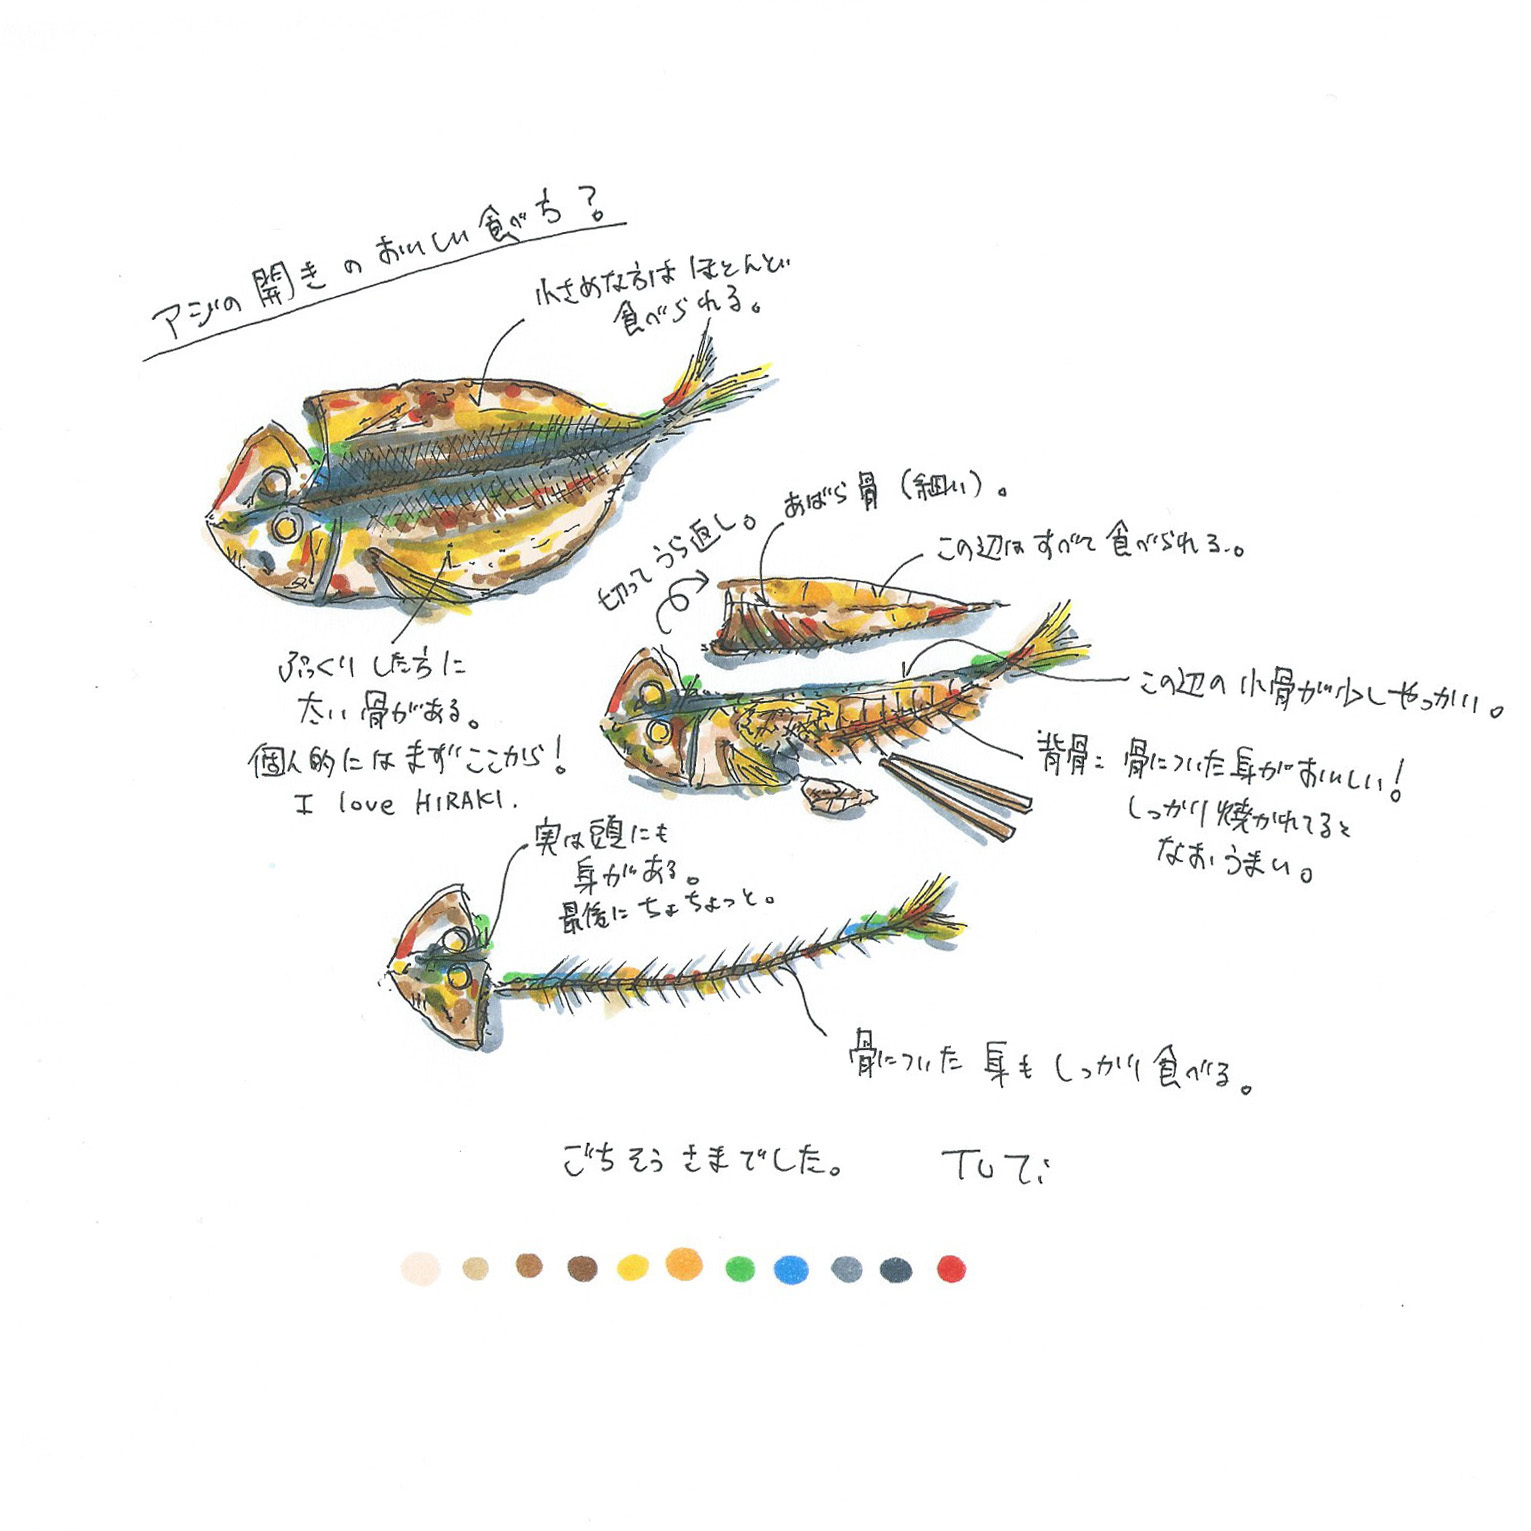 アジの開きのおいしい食べち?
小さめな方はほとんど
食べられる。
あばら骨(細い)。
切ってうら返し。
この辺はすべて食べられる。
ぷっくりした方に
太い骨がある。
個人的にはまずここから!
I love HIRAKI.
この辺の小骨が少しやっかい。
背骨:骨についた身がおいしい!
しっかり焼かれてると
なお、うまい。
実は頭にも
身がある。
最後にちょちょっと。
骨についた身もしっかり食べる。
ごちそうさまでした。